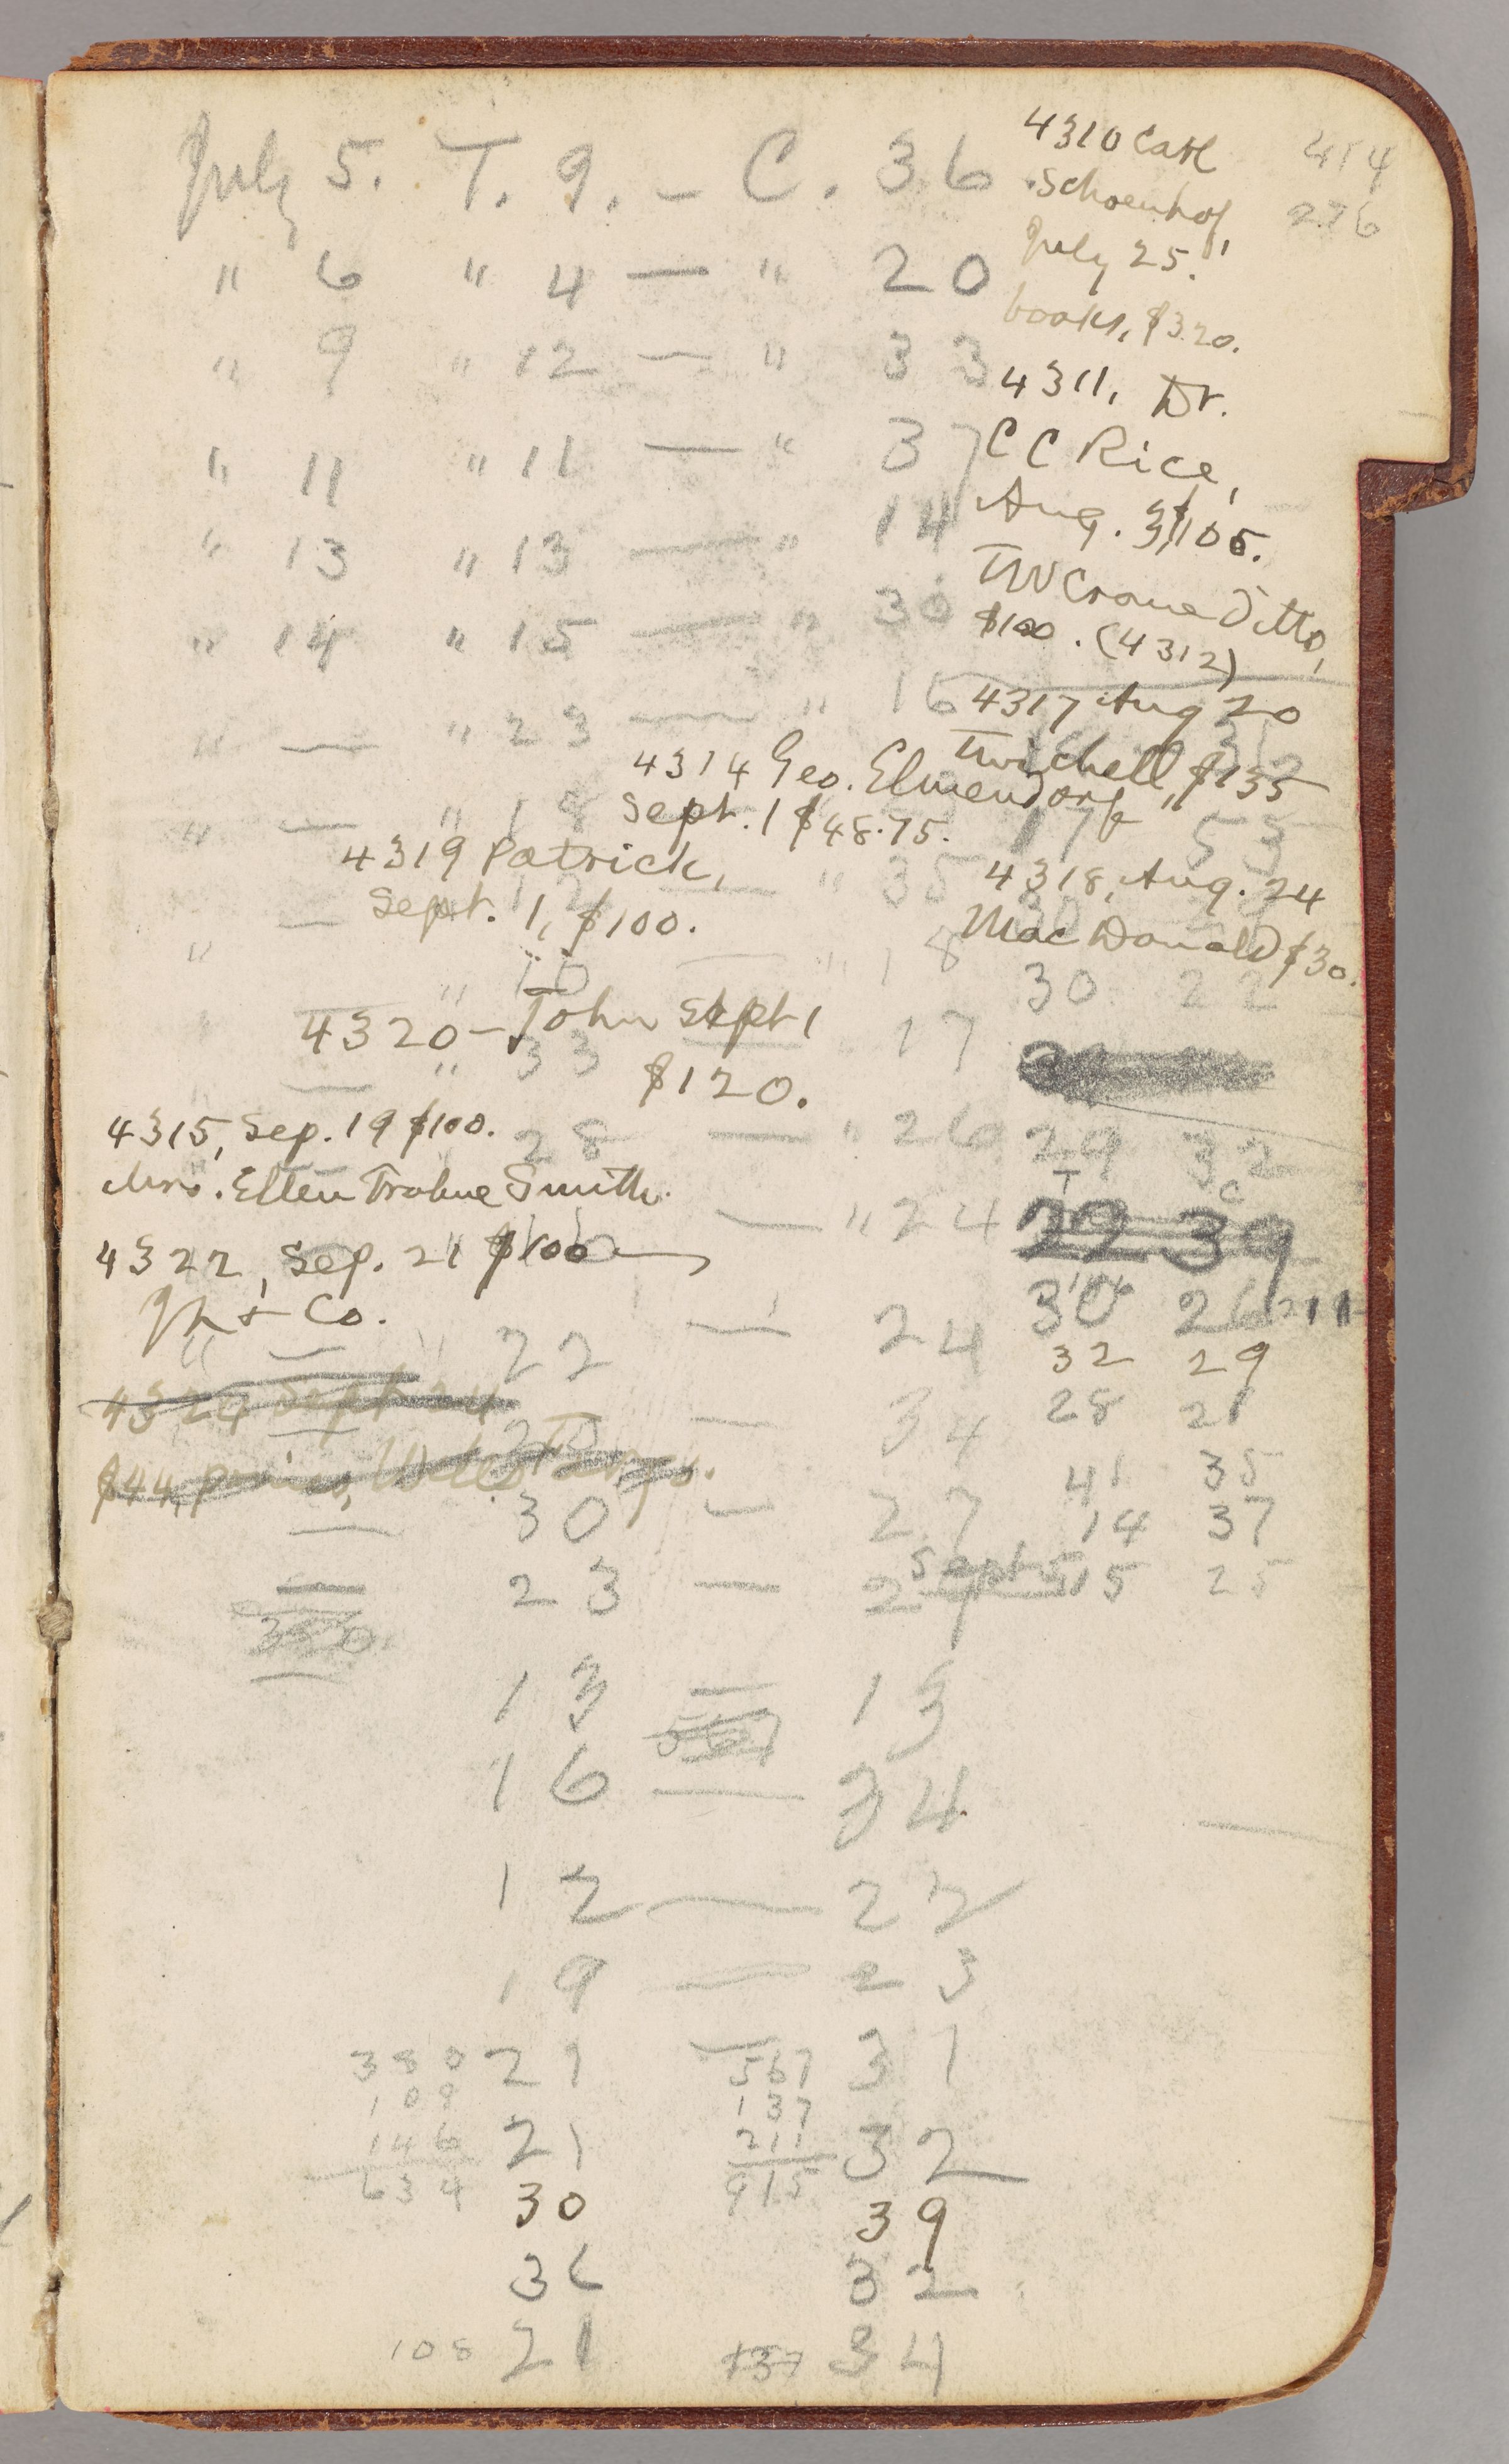 July 5. T. 9. — C. 36
" 6 " 4 — " 20
" 9 " 12 — " 33
" 11 " 11 — " 37
" 13 " 13 — " 14
" 14 " 15 — " 30
" — " 23 — " 16
" — " 18
" 35
" 18
" — " 33 17
28 — " 26
— " 24
" — 22 — 24
— 34
— 30 — 27
— 23 — 27
13 — 13
16 — 34
12 — 22
19 — 23
21 — 31
21 32
30 39
36 32
21 34
414
276
4310 Carl
Schoenhof
July 25.
books, $3.20.
4311, Dr.
C C Rice,
Aug. 3, $105.
TW Crane Ditto,
$100. (4312)
4317 Aug 20
Twichell, $135
4314 Geo. Elmendorf
Sept. 1 $48.75.
4319 Patrick,
Sept. 1, $100.
4318, Aug. 24
MacDonald $30.
4320 — John Sept 1
$120.
4315, Sep. 19 $100.
Mrs. Ellen Trabue Smith.
4322, Sep. 21 $100
& Co.
4324 Sept 24
$44,
17 53
30 22
29 32
T C
22 39
30 26 211
32 29
28 21
41 35
14 37
Sept 5 15 25
380
567
380
109
146
634
567
137
211
915
108
137